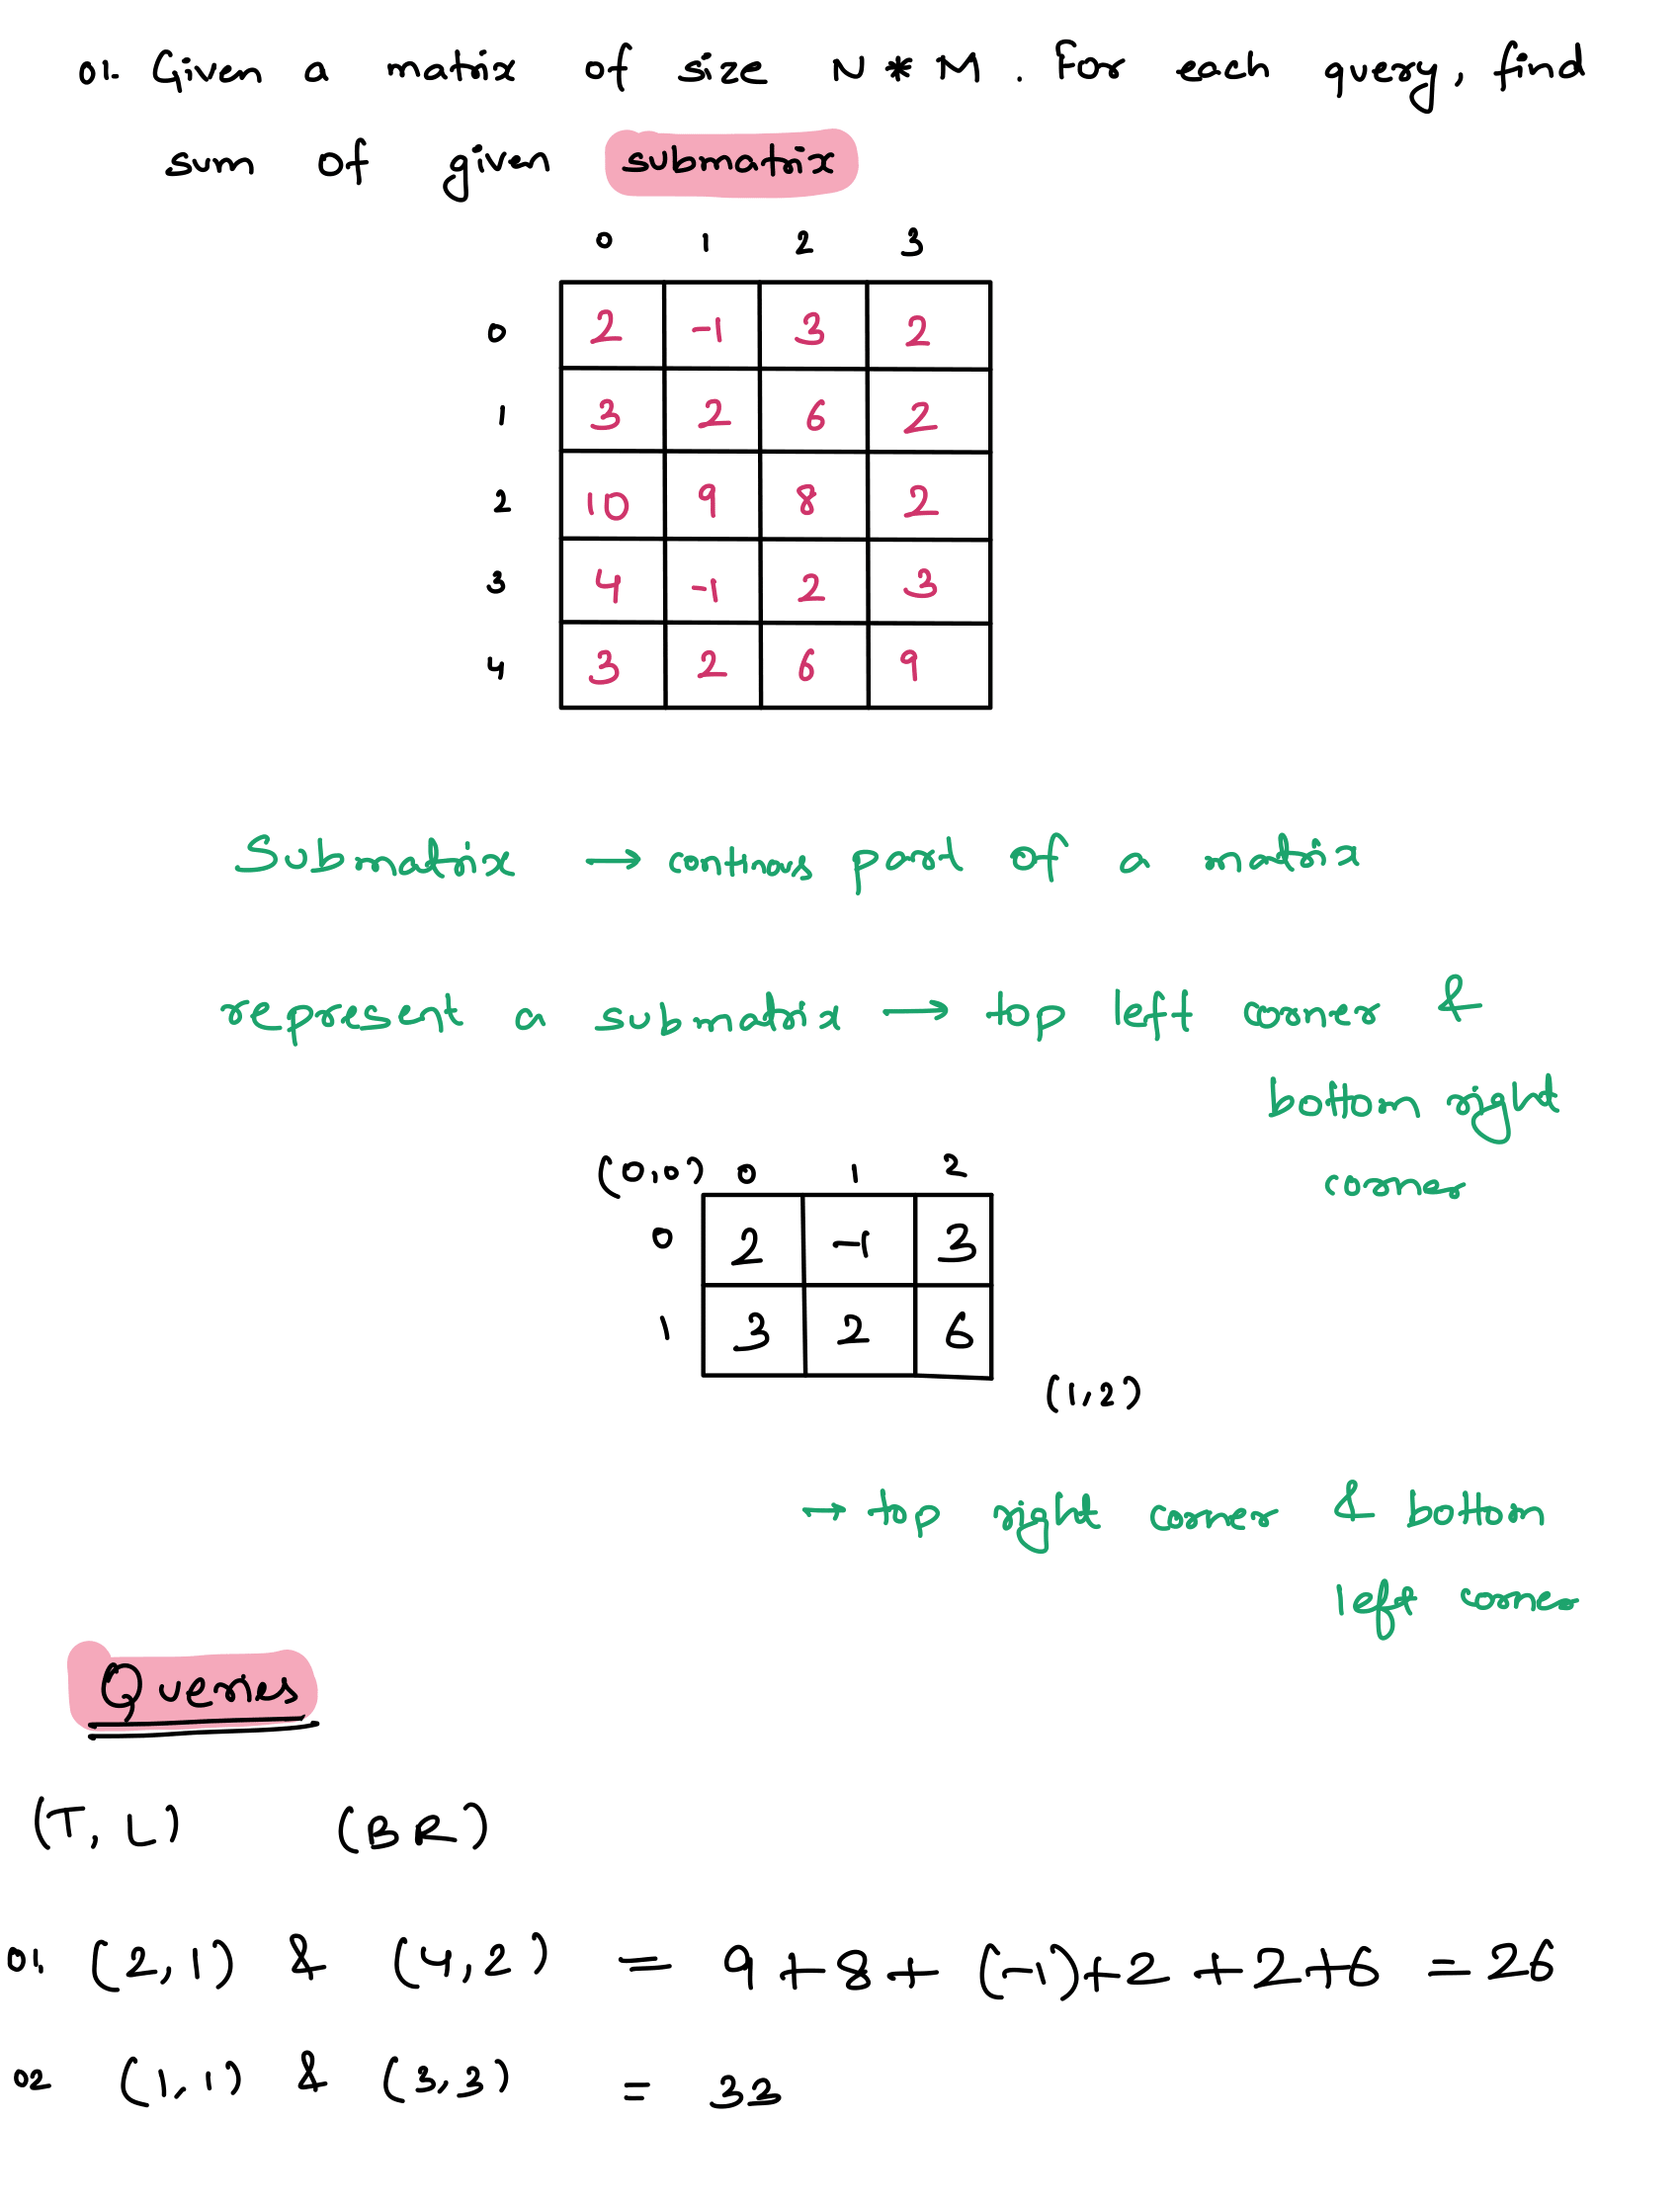 01. Given a matrix of size N * M . For each query, find
sum of given submatrix
0 1 2 3
0 2 -1 3 2
1 3 2 6 2
2 10 9 8 2
3 4 -1 2 3
4 3 2 6 9
Submatrix → continous part of a matrix
represent a submatrix → top left corner &
bottom right
corner
(0,0) 0 1 2
0 2 -1 3
1 3 2 6
(1,2)
→ top right corner & bottom
left corner
Queries
(T, L) (BR)
01. (2,1) & (4,2) = 9+8+ (-1)+2 +2+6 = 26
02 (1,1) & (3,3) = 33